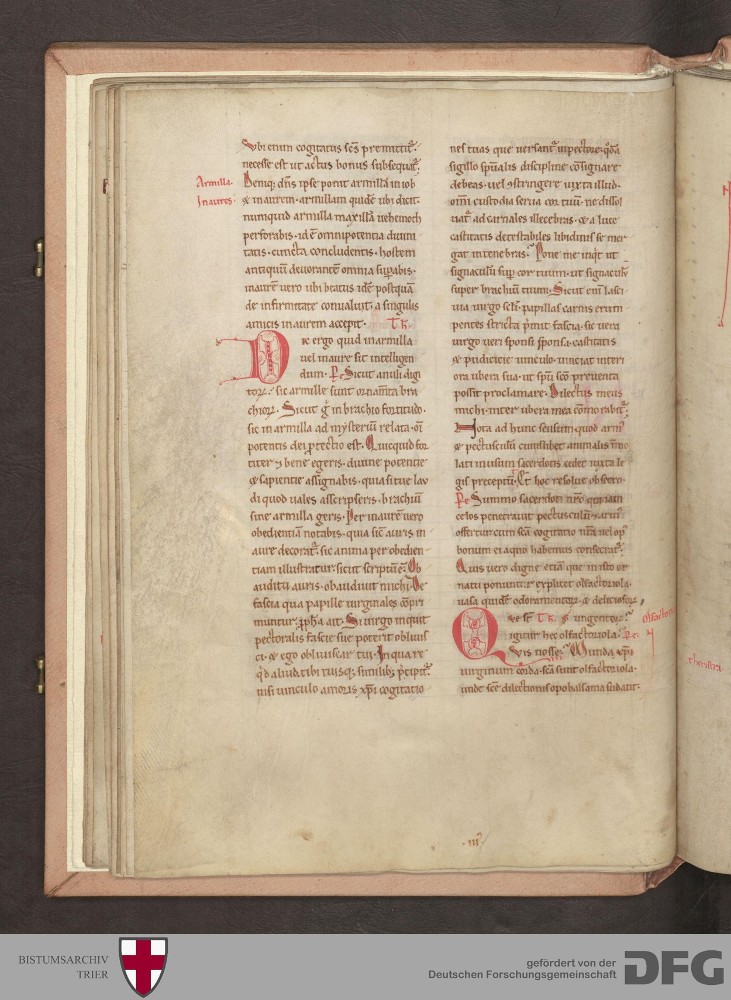 Vbi enim cogitatus scs premittit᷑.
necesse est ut actus bonus subsequat᷑.
Armilla.
Deniq; dns ipse ponit armillā in iob
Inaures.
& inaurem. armillam quidē ubi dicit.
numquid armilla maxillā uehemoth
perforabis. id ē omnipotentia diuini
tatis. cuncta concludentis. hostem
antiquū deuorantē omnia supabis.
inaurē uero ubi beatus idē postquā
de infirmitate conualuit. a singulis
amicis inaurem accepit. Th.
Dic ergo quid in armilla
uel inaure sit intelligen
dum. Pe. Sicut anuli digi
toꝝ. sic armille sunt ornamta bra
chioꝝ. Sicut g in brachio fortitudo.
sic in armilla ad mysteriū relata. oi
potentis dei ptectio est. Quicquid for
titer ⁊ bene egeris. diuine potentie
& sapientie assignabis. quia si tue lau
di quod uales asscripseris. brachiū
sine armilla geris. Per inaurē uero
obedientiam notabis. quia sic auris in
aure decorat᷑. sic anima per obedien
tiam illustratur. sicut scriptum ē. Ob
auditu auris. obaudiuit michi. De
fascia qua papille uirginales cōpri
muntur. ppha ait. Si uirgo inquit
pectoralis fascie sue poterit obliuis
ci. & ego obliuiscar tui. In qua re
qd aliud tibi tuisq; similib; pcipit᷑.
nisi uinculo amoris xpi cogitatio
nes tuas que uersant᷑ in pectore. qdā
sigillo spualis discipline cōsignare
debeas. uel ꝯstringere iuxta illud.
omni custodia serua cor tuū. ne dissol
uat᷑ ad carnales illecebras. & a luce
castitatis detestabiles libidinis se mer
gat in tenebras. Pone me inqt ut
signaculū sup cor tuum. ut signaculū
super brachiū tuum. Sicut eni lasci
uia uirgo scli. papillas carnis erum
pentes stricta pmit fascia. sic uera
uirgo ueri sponsi sponsa. castitatis
& pudicicie uinculo. uinciat interi
ora ubera sua. ut spū scō preuenta
possit proclamare. Dilectus meus
michi. inter ubera mea cōmorabit᷑.
Nota ad hunc sensum quod arm
& pectusculū cuiuslibet animalis īmo
lati in usum sacerdotis cedet iuxta le
gis preceptū. Et hoc resolue obsecro.
Pe. Summo sacerdoti nro qui iam
celos penetrauit pectusculū & armū
offertur cum scā cogitatio nra uel op
bonum ei a quo habemus consecrat᷑.
Quis uero digne etiā que in isto or
natu ponunt᷑. explicet olfactoriola.
uasa quidē odoramentoꝝ. & delicioꝝ.
Que sr Th. ꝯ ungentoꝝ.
olfactor
igitur hec olfactoriola. Pe.
Vis nosse. Munda xpi
uirginum corda. scā sunt olfactoriola.
unde scē dilectionis opobalsama sudant.
theristra
.iiiꝰ
BISTUMSARCHIV
TRIER
gefördert von der
Deutschen Forschungsgemeinschaft
DFG